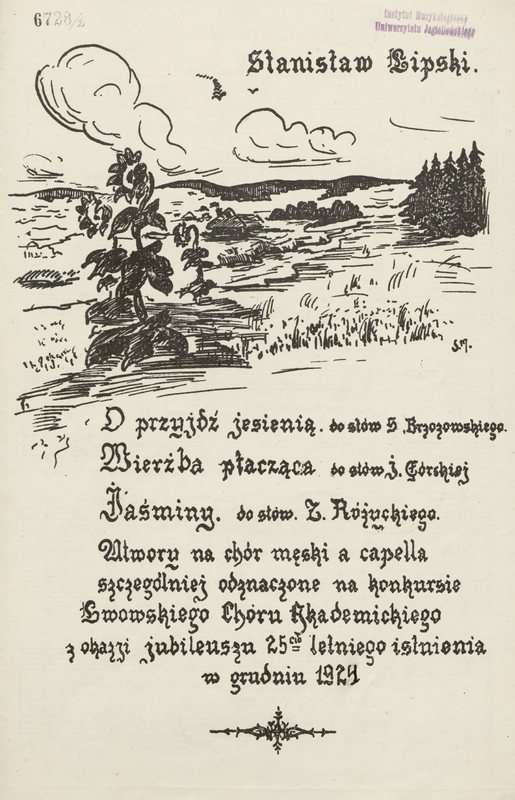 6728/2
Instytut Muzykologiczny
Uniwersytetu Jagiellońskiego
Stanisław Lipski.
S.M.
O przyjdź jesienią. do słów S. Brzozowskiego.
Wierzba płacząca do słów J. Górskiej
Jaśminy. do słów. Z. Różyckiego.
Utwory na chór męski a capella
szczególniej odznaczone na konkursie
Lwowskiego Chóru Akademickiego
z okazji jubileuszu 25cio letniego istnienia
w grudniu 1924